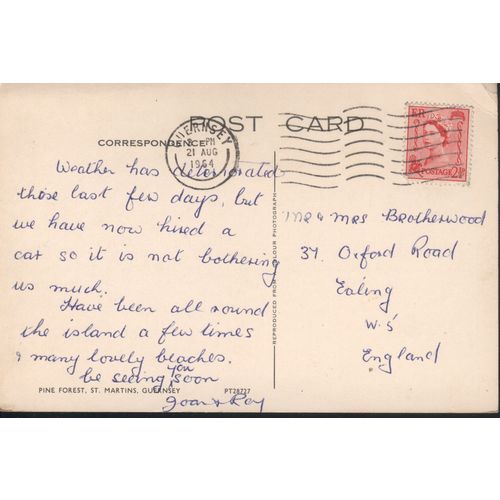 POST CARD
CORRESPONDENCE
GUERNSEY
PM
21 AUG
1964
E R
POSTAGE 2½D
Weather has deteriorated
these last few days, but
we have now hired a
car so it is not bothering
us much.
Have been all round
the island a few times
& many lovely beaches.
be seeing you soon
Joan & Roy
PINE FOREST, ST. MARTINS, GUERNSEY PT28727
REPRODUCED FROM COLOUR PHOTOGRAPH
Mr & Mrs Brotherwood
37 Oxford Road
Ealing
W.5
England